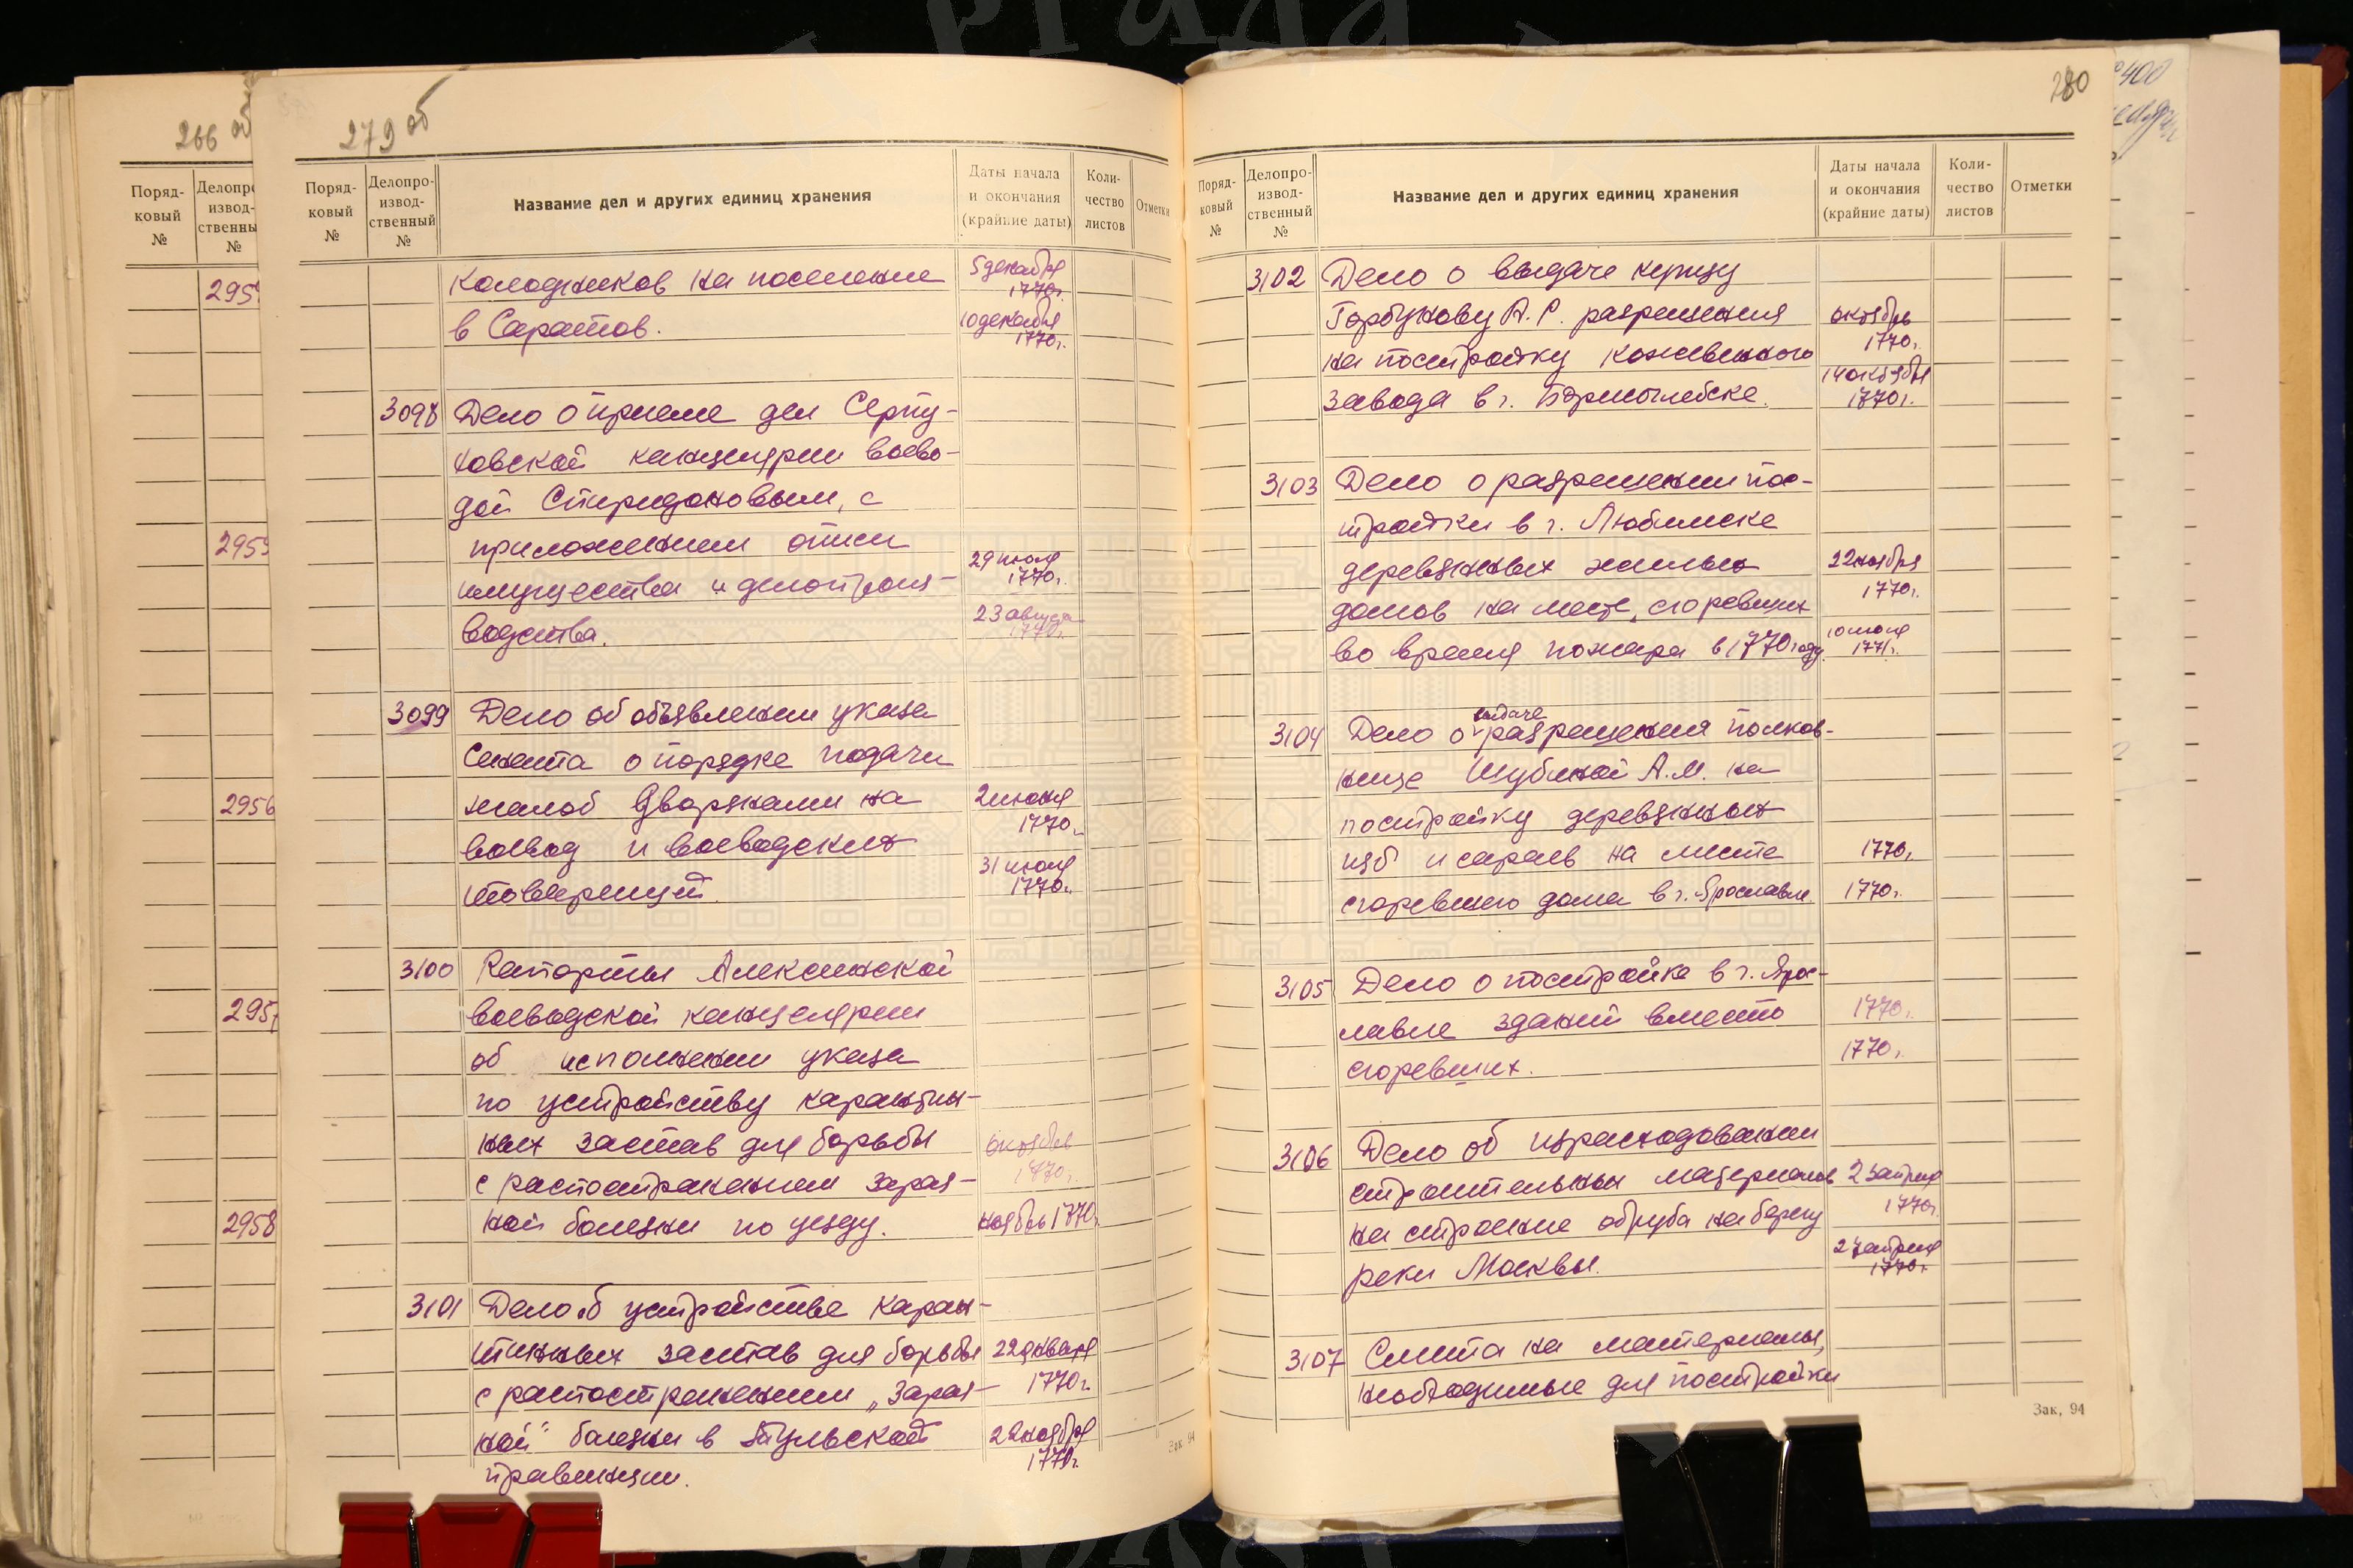 ргада
266 об
Поряд-
ковый
№
Делопро
извод-
ственны
№
295
295
2956
295
2958
279 об
Поряд-
ковый
№
Делопро-
извод-
ственный
№
Название дел и других единиц хранения
Даты начала
и окончания
(крайние даты)
Коли-
чество
листов
Отметки
колодников на поселение
5 декабря
1770г.
в Саратов.
10 декабря
1770г.
3098 Дело о приеме дел Серпу-
ховской канцелярии воево-
дой Спиридоновым, с
приложением описи
имущества и делопроиз-
29 июля
1770г.
водства.
23 августа
1770г.
3099 Дело об объявлении указа
Сената о порядке подачи
жалоб дворянами на
2 июня
1770г.
воевод и воеводских
товарищей.
31 июля
1770г.
3100 Рапорты Алексинской
воеводской канцелярии
об исполнении указа
по устройству карантин-
ных застав для борьбы
с распостранением зараз-
октябрь
1770г.
ной болезни по уезду.
ноябрь 1770г.
3101 Дело об устройстве каран-
тинных застав для борьбы
22 января
с распостранением „зараз-
1770г.
ной" болезни в Тульской
22 ноября
1770г.
провинции.
Зак. 94
280
Поряд-
ковый
№
Делопро-
извод-
ственный
№
Название дел и других единиц хранения
Даты начала
и окончания
(крайние даты)
Коли-
чество
листов
Отметки
3102 Дело о выдаче купцу
Горбунову А. С. разрешения
октябрь
1770г.
на постройку кожевенного
завода в г. Борисоглебске.
14 октября
1770г.
3103 Дело о разрешении пос-
тройки в г. Любимске
деревянных жилых
22 ноября
1770г.
домов на месте, сгоревших
во время пожара в 1770 году.
10 июля
1771г.
3104 Дело о выдаче разрешения полков-
нице Шубиной А. М. на
постройку деревянных
изб и сараев на месте
1770г.
сгоревшего дома в г. Ярославле.
1770г.
3105 Дело о постройке в г. Яро-
славле зданий вместо
1770г.
сгоревших.
1770г.
3106 Дело об израсходовании
строительных материалов
23 апреля
1770г.
на строение обруба на берегу
реки Москвы.
27 апреля
1770г.
3107 Смета на материалы,
необходимые для постройки
Зак. 94